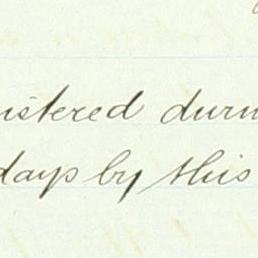 istered durin
days by this